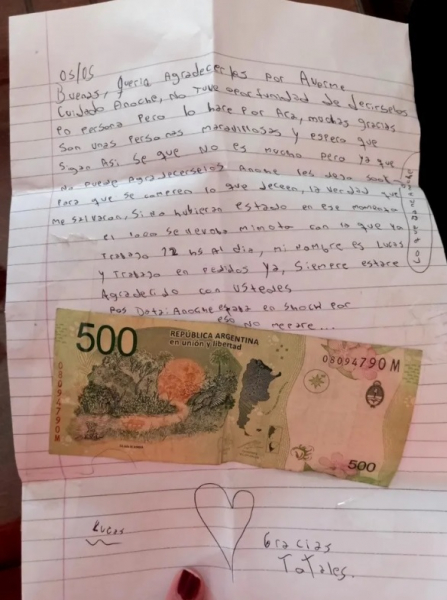 05/05
Buenas, Queria Agradecerles por Averme
Cuidado Anoche, no tuve oportunidad de decirselos
en persona pero lo hare por Aca, muchas gracias
son unas personas maravillosas y espero que
sigan Asi se que no es mucho pero ya que
no pude Agradecerselos Anoche les dejo
para que se compren lo que deceen, la verdad que
me salvaron, Si no hubieran estado en ese momento
el se llevaba mi moto con la que yo
trabajo 12 hs Al dia, mi nombre es Lucas
y trabajo en pedidos ya, Siempre estare
Agradecido con ustedes
Pos Data: Anoche estaba en shock por
eso No reacc...
500
REPÚBLICA ARGENTINA
en unión y libertad
08094790 M
08094790 M
500
Lucas
Gracias
ToTales.